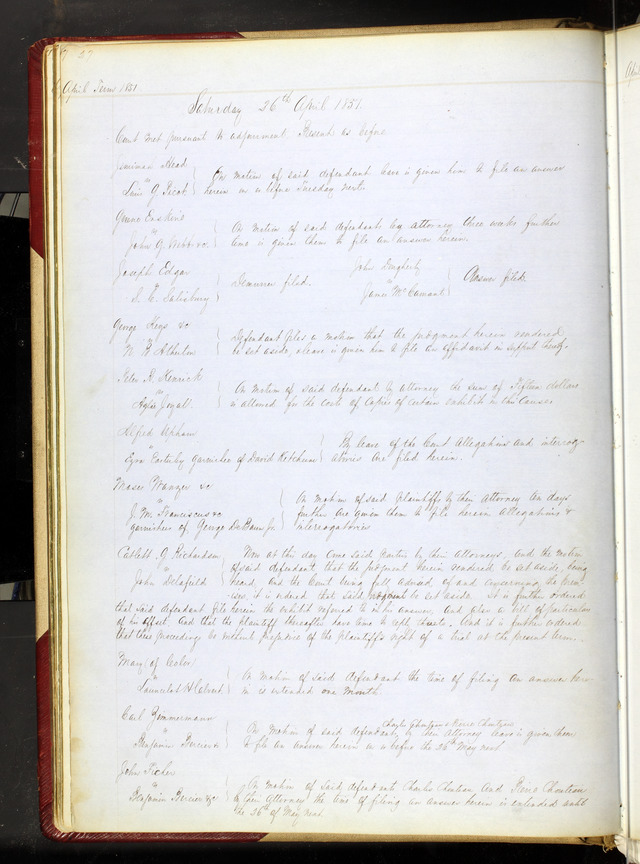 April Term 1851
Saturday 26th April 1851
Court met pursuant to adjournment Present as before
Head
vs
On motion of said defendant leave is given him to file an answer
herein on or before Tuesday next.
Erskine
vs
John G. Webb &c.
On motion of said defendant by attorney three weeks further
time is given them to file an answer herein.
Joseph Edgar
vs
Salisbury
Demurrer filed.
John Dougherty
vs
James McCamant
Answer filed.
George Keys &c
vs
Defendant files a motion that the judgment herein rendered
be set aside, & leave is given him to file an affidavit in support thereof.
Peter R.
vs
On motion of said defendant by attorney the sum of Fifteen dollars
is allowed for the costs of copies of certain exhibits in this cause
Alfred Upham
vs
Ezra garnishee of David Ketchum
By leave of the Court Allegations and interrog-
atories are filed herein.
Moses Wanzer &c
vs
J. M. Franciscus &c
garnishees of George
On motion of said Plaintiffs by their attorney ten days
further are given them to file herein allegations &
interrogatories
G. Richardson
vs
John Delafield
Now at this day come said parties by their attorneys, and the motion
of said defendant that the judgment herein rendered be set aside, being
heard, and the Court being fully advised of and concerning the prem-
ises, it is ordered that said judgment be set aside. It is further ordered
that said defendant file herein the exhibit referred to in his answer, and also a bill of particulars
of his offset. And that the plaintiff thereafter have time to reply thereto. And it is further ordered
that these proceedings be without prejudice of the plaintiff's right of a trial at the present term.
Mary
vs
Launcelot H Calvert
On motion of said defendant the time of filing an answer here-
in is extended one month
Carl Zimmermann
vs
Benjamin
On motion of said defendants Charles Chouteau & Pierre Chouteau by their attorney leave is given them
to file an answer herein on or before the 26th May next
John
vs
Benjamin &c
On motion of said defendants Charles Chouteau and Pierre Chouteau
by their attorney the time of filing an answer herein is extended until
the 26th of May next